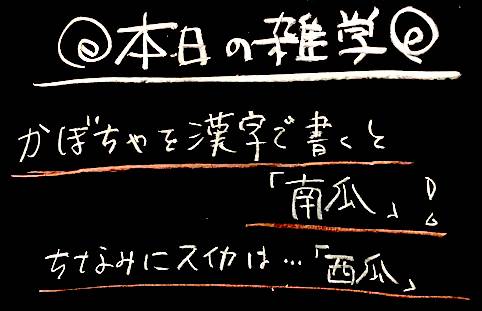 @本日の雑学@
かぼちゃを漢字で書くと
「南瓜」!
ちなみにスイカは…「西瓜」